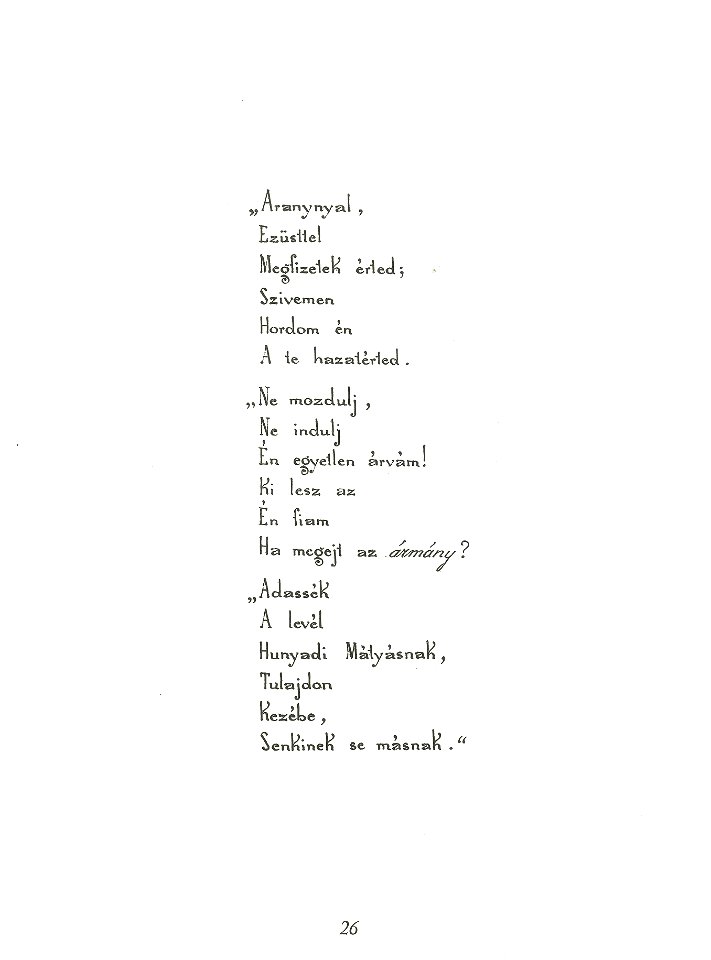 „Aranynyal,
Ezüsttel
Megfizetek érted;
Szivemen
Hordom én
A te hazatérted.
„Ne mozdulj,
Ne indulj
Én egyetlen árvám!
Ki lesz az
Én fiam
Ha megejt az ármány?
„Adassék
A levél
Hunyadi Mátyásnak,
Tulajdon
Kezébe,
Senkinek se másnak.“
26